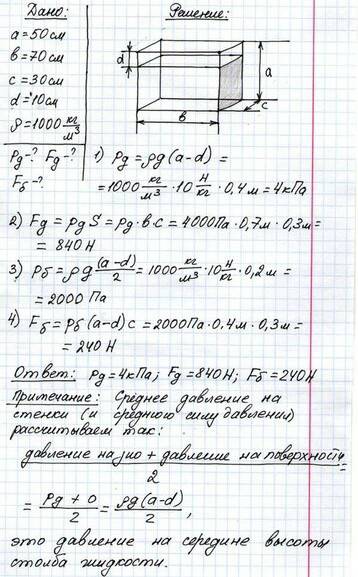 Дано:
a=50см
в=70см
c=30см
d=10см
ρ=1000 кг/м³
Pд-? Fд-?
Fб-?
Решение:
d
a
в
c
1) Pд = ρg(a-d) =
=1000 кг/м³ · 10 Н/кг · 0,4м = 4кПа
2) Fд = pд S = pд·в·c = 4000Па·0,7м·0,3м=
= 840 Н
3) Pб = ρg (a-d)/2 = 1000 кг/м³ · 10 Н/кг · 0,2м =
= 2000 Па
4) Fб = pб (a-d) c = 2000Па·0,4м·0,3м=
= 240 Н
Ответ: pд=4кПа; Fд=840Н; Fб=240Н
Примечание: Среднее давление на
стенки (и среднюю силу давления)
рассчитываем так:
давление на дно + давление на поверхность
2
=
= (pд + 0)/2 = ρg(a-d)/2,
это давление на середине высоты
столба жидкости.